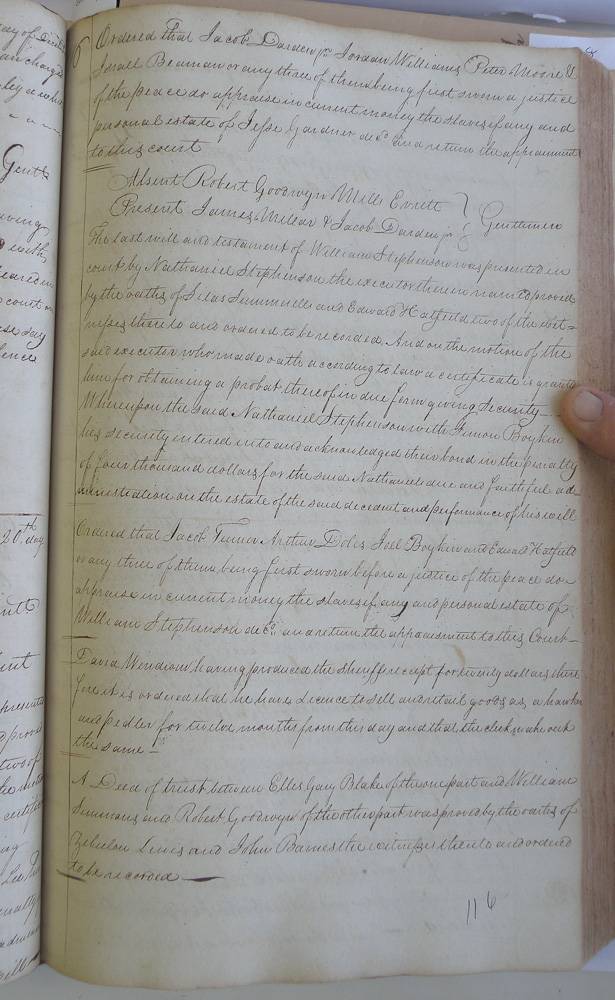 6 Ordered that Jacob Darden jr Jordan Williams Peter Moore &
Israll Beaman or any three of them being first sworn a justice
of the peace do appraise in current money the slaves if any and
personal estate of Jesse Gardner decd and return the appraisment
to this court
Absent Robert Goodwyn Mills Everett
Present James Millar & Jacob Darden jr Gentlemen
The last will and testament of William Stephenson was presented in
court by Nathaniel Stephenson the executor therein named proved
by the oaths of Silas Summerell and Edward Hatfield two of the wit=
nesses thereto and ordered to be recorded And on the motion of the
said executor who made oath according to law a certificate is granted
him for obtaining a probat thereof in due form giving security
Whereupon the said Nathaniel Stephenson with Simon Boykin
his security entered into and acknowledged their bond in the penalty
of four thousand dollars for the said Nathaniels due and faithful ad-
ministration on the estate of the said decedent and performance of his will
Ordered that Jacob Turner Arthur Doles Joel Boykin and Edward Hatfield
or any three of them being first sworn before a justice of the peace do
appraise in current money the slaves if any and personal estate of
William Stephenson decd and return the appraisment to this Court
David Wendrow having produced the sheriff receipt for twenty dollars there
fore it is ordered that he have licence to sell and retail goods as a hawker
and pedler for twelve months from this day and that the clerk make out
the same
A Deed of trust between Elles Gary Blake of the one part and William
Simmons and Robert Goodwyn of the other part was proved by the oaths of
Zebulon Lewis and John Barnes the witnesses thereto and ordered
to be recorded
116
20th day
Gent